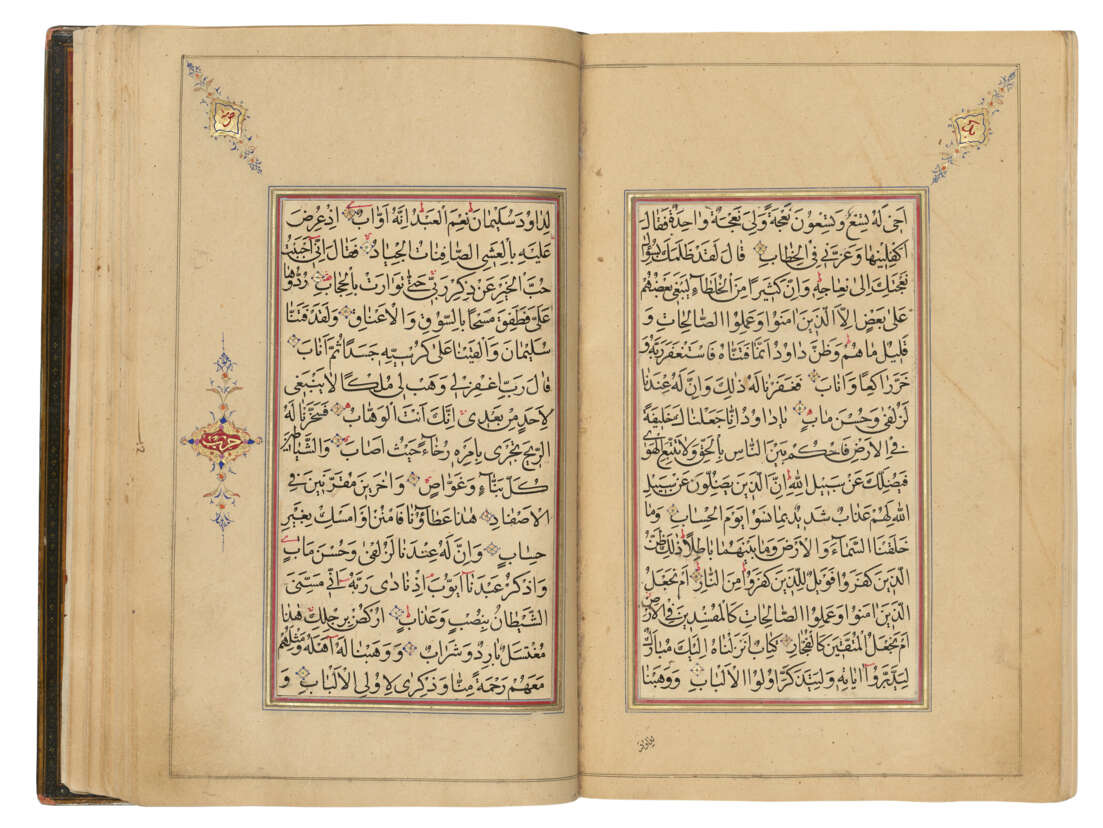 اَخى لَهُ تِسْعٌ وَتِسْعُونَ نَعْجَةً وَلِىَ نَعْجَةٌ وٰاحِدَةٌ فَقٰالَ
اَكْفِلْنيهٰا وَعَزَّنى فِى الْخِطٰابِ قٰالَ لَقَدْ ظَلَمَكَ بِسُؤٰالِ
نَعْجَتِكَ اِلىٰ نِعٰاجِهِ وَاِنَّ كَثيرًا مِنَ الْخُلَطٰاءِ لَيَبْغى بَعْضُهُمْ
عَلىٰ بَعْضٍ اِلَّا الَّذينَ اٰمَنُوا وَعَمِلُوا الصّٰالِحٰاتِ وَ
قَليلٌ مٰا هُمْ وَظَنَّ دٰاوُدُ اَنَّمٰا فَتَنّٰاهُ فَاسْتَغْفَرَ رَبَّهُ وَ
خَرَّ رٰاكِعًا وَاَنٰابَ فَغَفَرْنٰا لَهُ ذٰلِكَ وَاِنَّ لَهُ عِنْدَنٰا
لَزُلْفىٰ وَحُسْنَ مَاٰبٍ يٰا دٰاوُدُ اِنّٰا جَعَلْنٰاكَ خَليفَةً
فِى الْاَرْضِ فَاحْكُمْ بَيْنَ النّٰاسِ بِالْحَقِّ وَلٰا تَتَّبِعِ الْهَوىٰ
فَيُضِلَّكَ عَنْ سَبيلِ اللّٰهِ اِنَّ الَّذينَ يَضِلُّونَ عَنْ سَبيلِ
اللّٰهِ لَهُمْ عَذٰابٌ شَديدٌ بِمٰا نَسُوا يَوْمَ الْحِسٰابِ وَمٰا
خَلَقْنَا السَّمٰاءَ وَالْاَرْضَ وَمٰا بَيْنَهُمٰا بٰاطِلًا ذٰلِكَ ظَنُّ
الَّذينَ كَفَرُوا فَوَيْلٌ لِلَّذينَ كَفَرُوا مِنَ النّٰارِ اَمْ نَجْعَلُ
الَّذينَ اٰمَنُوا وَعَمِلُوا الصّٰالِحٰاتِ كَالْمُفْسِدينَ فِى الْاَرْضِ
اَمْ نَجْعَلُ الْمُتَّقينَ كَالْفُجّٰارِ كِتٰابٌ اَنْزَلْنٰاهُ اِلَيْكَ مُبٰارَكٌ
لِيَدَّبَّرُوا اٰيٰاتِهِ وَلِيَتَذَكَّرَ اُولُوا الْاَلْبٰابِ وَوَهَبْنٰا
لِدٰاوُدَ سُلَيْمٰانَ نِعْمَ الْعَبْدُ اِنَّهُ اَوّٰابٌ اِذْ عُرِضَ
عَلَيْهِ بِالْعَشِىِّ الصّٰافِنٰاتُ الْجِيٰادُ فَقٰالَ اِنّى اَحْبَبْتُ
حُبَّ الْخَيْرِ عَنْ ذِكْرِ رَبّى حَتّىٰ تَوٰارَتْ بِالْحِجٰابِ رُدُّوهٰا
عَلَىَّ فَطَفِقَ مَسْحًا بِالسُّوقِ وَالْاَعْنٰاقِ وَلَقَدْ فَتَنّٰا
سُلَيْمٰانَ وَاَلْقَيْنٰا عَلىٰ كُرْسِيِّهِ جَسَدًا ثُمَّ اَنٰابَ
قٰالَ رَبِّ اغْفِرْ لى وَهَبْ لى مُلْكًا لٰا يَنْبَغى
لِاَحَدٍ مِنْ بَعْدى اِنَّكَ اَنْتَ الْوَهّٰابُ فَسَخَّرْنٰا لَهُ
الرّيحَ تَجْرى بِاَمْرِهِ رُخٰاءً حَيْثُ اَصٰابَ وَالشَّيٰاطينَ
كُلَّ بَنّٰاءٍ وَغَوّٰاصٍ وَاٰخَرينَ مُقَرَّنينَ فِى
الْاَصْفٰادِ هٰذٰا عَطٰاؤُنٰا فَامْنُنْ اَوْ اَمْسِكْ بِغَيْرِ
حِسٰابٍ وَاِنَّ لَهُ عِنْدَنٰا لَزُلْفىٰ وَحُسْنَ مَاٰبٍ
وَاذْكُرْ عَبْدَنٰا اَيُّوبَ اِذْ نٰادىٰ رَبَّهُ اَنّى مَسَّنِىَ
الشَّيْطٰانُ بِنُصْبٍ وَعَذٰابٍ اُرْكُضْ بِرِجْلِكَ هٰذٰا
مُغْتَسَلٌ بٰارِدٌ وَشَرٰابٌ وَوَهَبْنٰا لَهُ اَهْلَهُ وَمِثْلَهُمْ
مَعَهُمْ رَحْمَةً مِنّٰا وَذِكْرىٰ لِاُولِى الْاَلْبٰابِ وَ
حزب